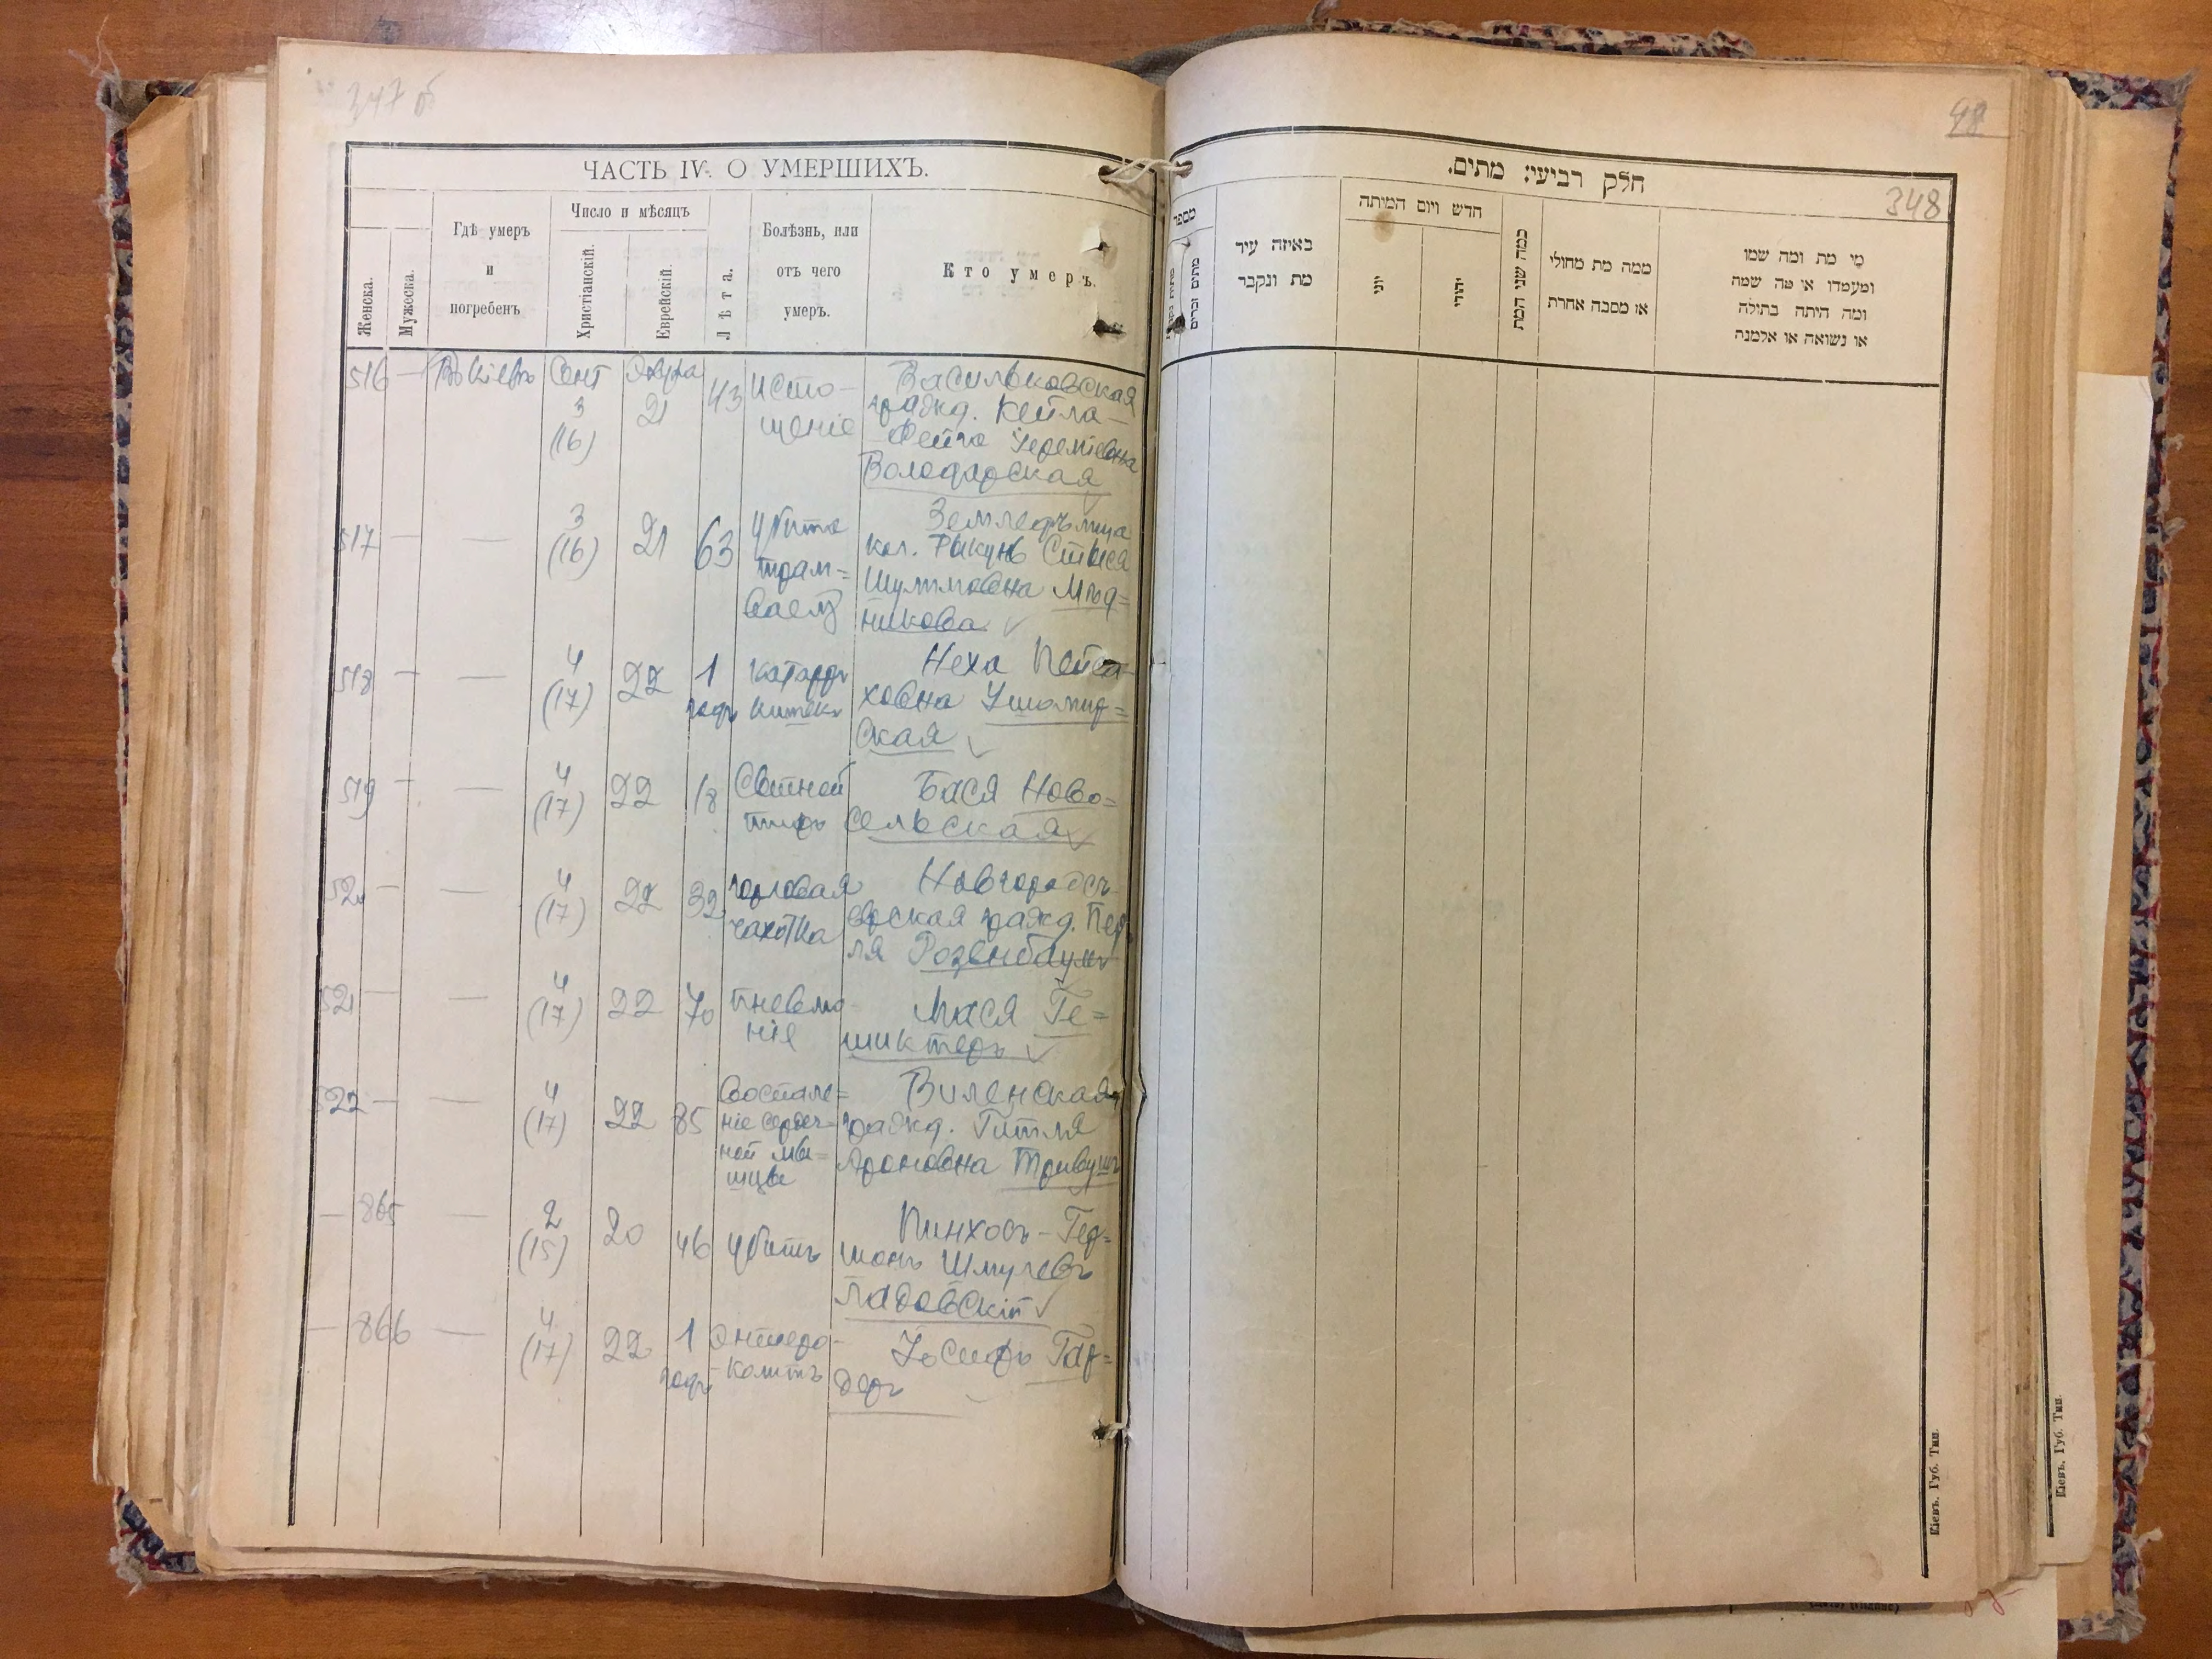 347 об
ЧАСТЬ IV. О УМЕРШИХЪ.
Женска.
Мужеска.
Гдѣ умеръ
и
погребенъ
Число и мѣсяцъ
Христіанскій.
Еврейскій.
Лѣта.
Болѣзнь, или
отъ чего
умеръ.
Кто умеръ.
516 — Въ Кіевѣ Сент 3 (16) Элула 21 43 Исто-
щеніе
Васильковская
гражд. Кейла-
Фейга Іереміевна
Володарская
517 — — 3 (16) 21 63 Убита
трам-
ваемъ
Земледѣлица
кол. Рыкунь
Шулимовна Мѣд-
никова
518 — — 4 (17) 22 1 годъ Катарръ
кишекъ
Неха Пейса-
ховна Ушомир-
ская
519 — — 4 (17) 22 18
тифъ
Бася Ново-
сельская
520 — — 4 (17) 22 32 горловая
чахотка
Новгородсѣ-
верская гражд. Пер-
ля Розенбаумъ
521 — — 4 (17) 22 70 Пневмо-
нія
Мася Ге-
шиктеръ
522 — — 4 (17) 22 85 Воспале-
ніе сердеч-
ной мы-
шцы
Виленская
гражд. Гитля
Ароновна Тривушъ
— 865 — 2 (15) 20 46 Убитъ
Пинхосъ-Гер-
шонъ Шмулевъ
Ладовскій
— 866 — 4 (17) 22 1 годъ Энтеро-
колитъ
Іосифъ Гар-
беръ
98
חלק רביעי: מתים.
348
מספר
מתים זכרים
באיזה עיר
מת ונקבר
חדש ויום המיתה
יוני
יהודי
כמה שני המת
ממה מת מחולי
או מסבה אחרת
מי מת ומה שמו
ומעמדו או מה שמה
ומה היתה בתולה
או נשואה או אלמנה
Кіевъ. Губ. Тип.
Кіевъ. Губ. Тип.